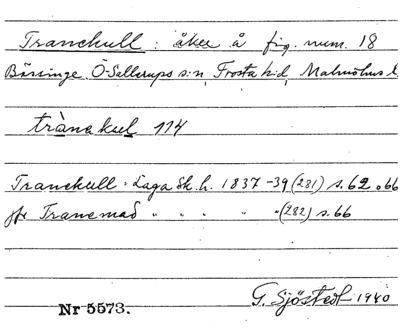 Tranekull : åker å fig. num. 18
Bårsinge, Ö-Sallerups s:n, Frosta h:d, Malmöhus l.
trànekul 114
Tranekull : Laga Sk. h. 1837-39 (281) s. 62 o 66
jfr Tranemad " " " " "(282) s. 66
G. Sjöstedt 1940
Nr 5573.